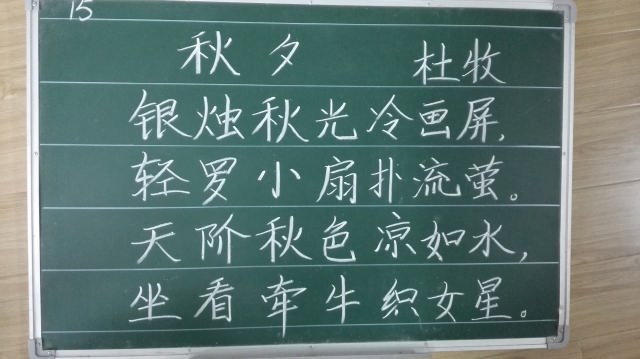 15
秋夕 杜牧
银烛秋光冷画屏,
轻罗小扇扑流萤。
天阶秋色凉如水,
坐看牵牛织女星。